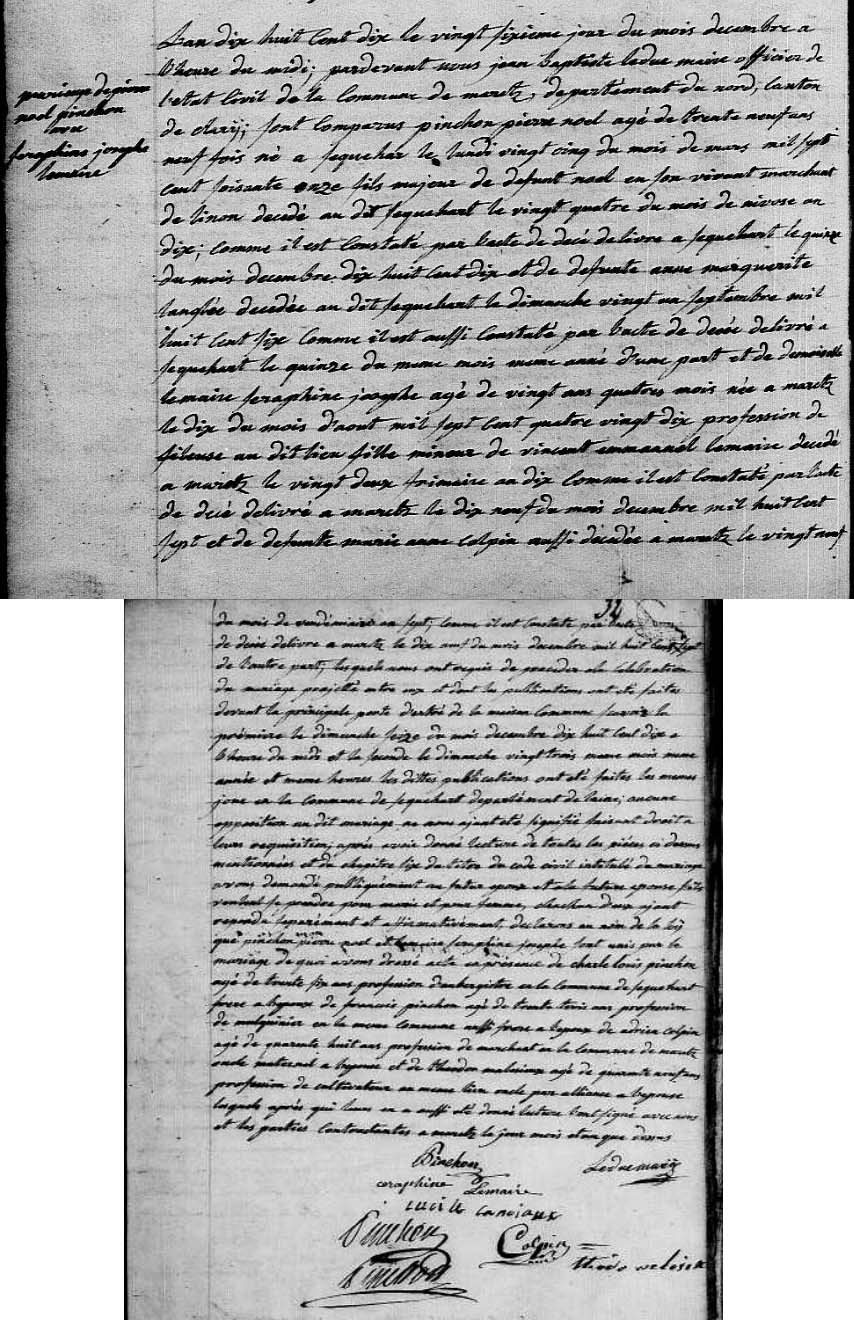 mariage de pierre
noel pinchon
avec
seraphine josephe
lemaire
L'an dix huit cent dix le vingt sixieme jour du mois decembre a
l'heure du midi; pardevant nous jean baptiste leduc maire officier de
l'etat Civil de la Commune de maretz, departement du nord, Canton
de clary; sont comparus pinchon pierre noel agé de trente neuf ans
neuf fois né a sequehar le lundi vingt cinq du mois de mars mil sept
cent soisante onze fils majeur de defunt noel en son vivant marchant
de linon decedé au dit sequehart le vingt quatre du mois de nivose an
dix; comme il est Constaté par l'acte de decé delivre a sequehart le quinze
du mois decembre dix huit cent dix et de defunte anne marguerite
langlée decedée au dit sequehart le dimanche vingt un septembre mil
huit cent six comme il est aussi Constaté par l'acte de decée delivré a
sequehart le quinze du meme mois meme année d'une part et de demoiselle
lemaire seraphine josephe agé de vingt ans quatres mois née a maretz
le dix du mois d'aout mil sept cent quatre vingt dix profession de
fileuse au dit lieu fille mineur de vincent emmanuel lemaire decedé
a maretz le vingt deux frimaire an dix Comme il est Constaté par l'acte
de decé delivré a maretz le dix neuf du mois decembre mil huit cent
sept et de defunte marie anne Colpin aussi décedée a maretz le vingt neuf
32
du mois de vendémiaire an sept; Comme il est Constaté par l'acte
de decée delivre a maretz le dix neuf du mois decembre mil huit cent sept
de l'autre part; lesquels nous ont requis de proceder a la Celebration
du mariage projetté entre eux et dont les publications ont été faites
devant la principale porte d'entré de la maison Commune savoir la
première le dimanche seize du mois decembre dix huit cent dix a
l'heure du midi et la seconde le dimanche vingt trois meme mois meme
année et meme heures les dittes publications ont été faites les memes
jour en la Commune de sequehart departément de laine; aucune
opposition au dit mariage ne nous ajant été signifié faisant droit a
leurs requisition; après avoir donné lecture de toutes les piéces ci dessus
mentionnées et du chapitre six du titre du code civil intitulé du mariage
avons demandé publiquément au futur epoux et a la future epouse s'ils
veulent se prendre pour marie et pour femme, chachun d'eux ajant
repondu separément et affirmativément, declarons au nom de la loy
que pinchon pierre noel et lemaire seraphine josephe sont unis par le
mariage de quoi avons dressé acte en présence de charle louis pinchon
agé de trente six ans profession d'aubergiste en la Commune de sequehart
frere a l'epoux de francois pinchon agé de trente trois ans profession
de mulquinier en la meme Commune aussi frere a l'epoux de adrien Colpin
agé de quarente huit ans profession de marchant en la Commune de maretz
oncle maternel a l'epouse et de theodor agé de quarante neuf ans
profession de cultivateur au meme lieu oncle par alliance a l'epouse
lesquels après qui leurs en a aussi été donné lecture l'ont signé avec nous
et les parties Contractantes a maretz le jour mois et an que dessus
Pinchon Leduc maire
ceraphine Lemaire
Pinchon Colpin
Pinchon